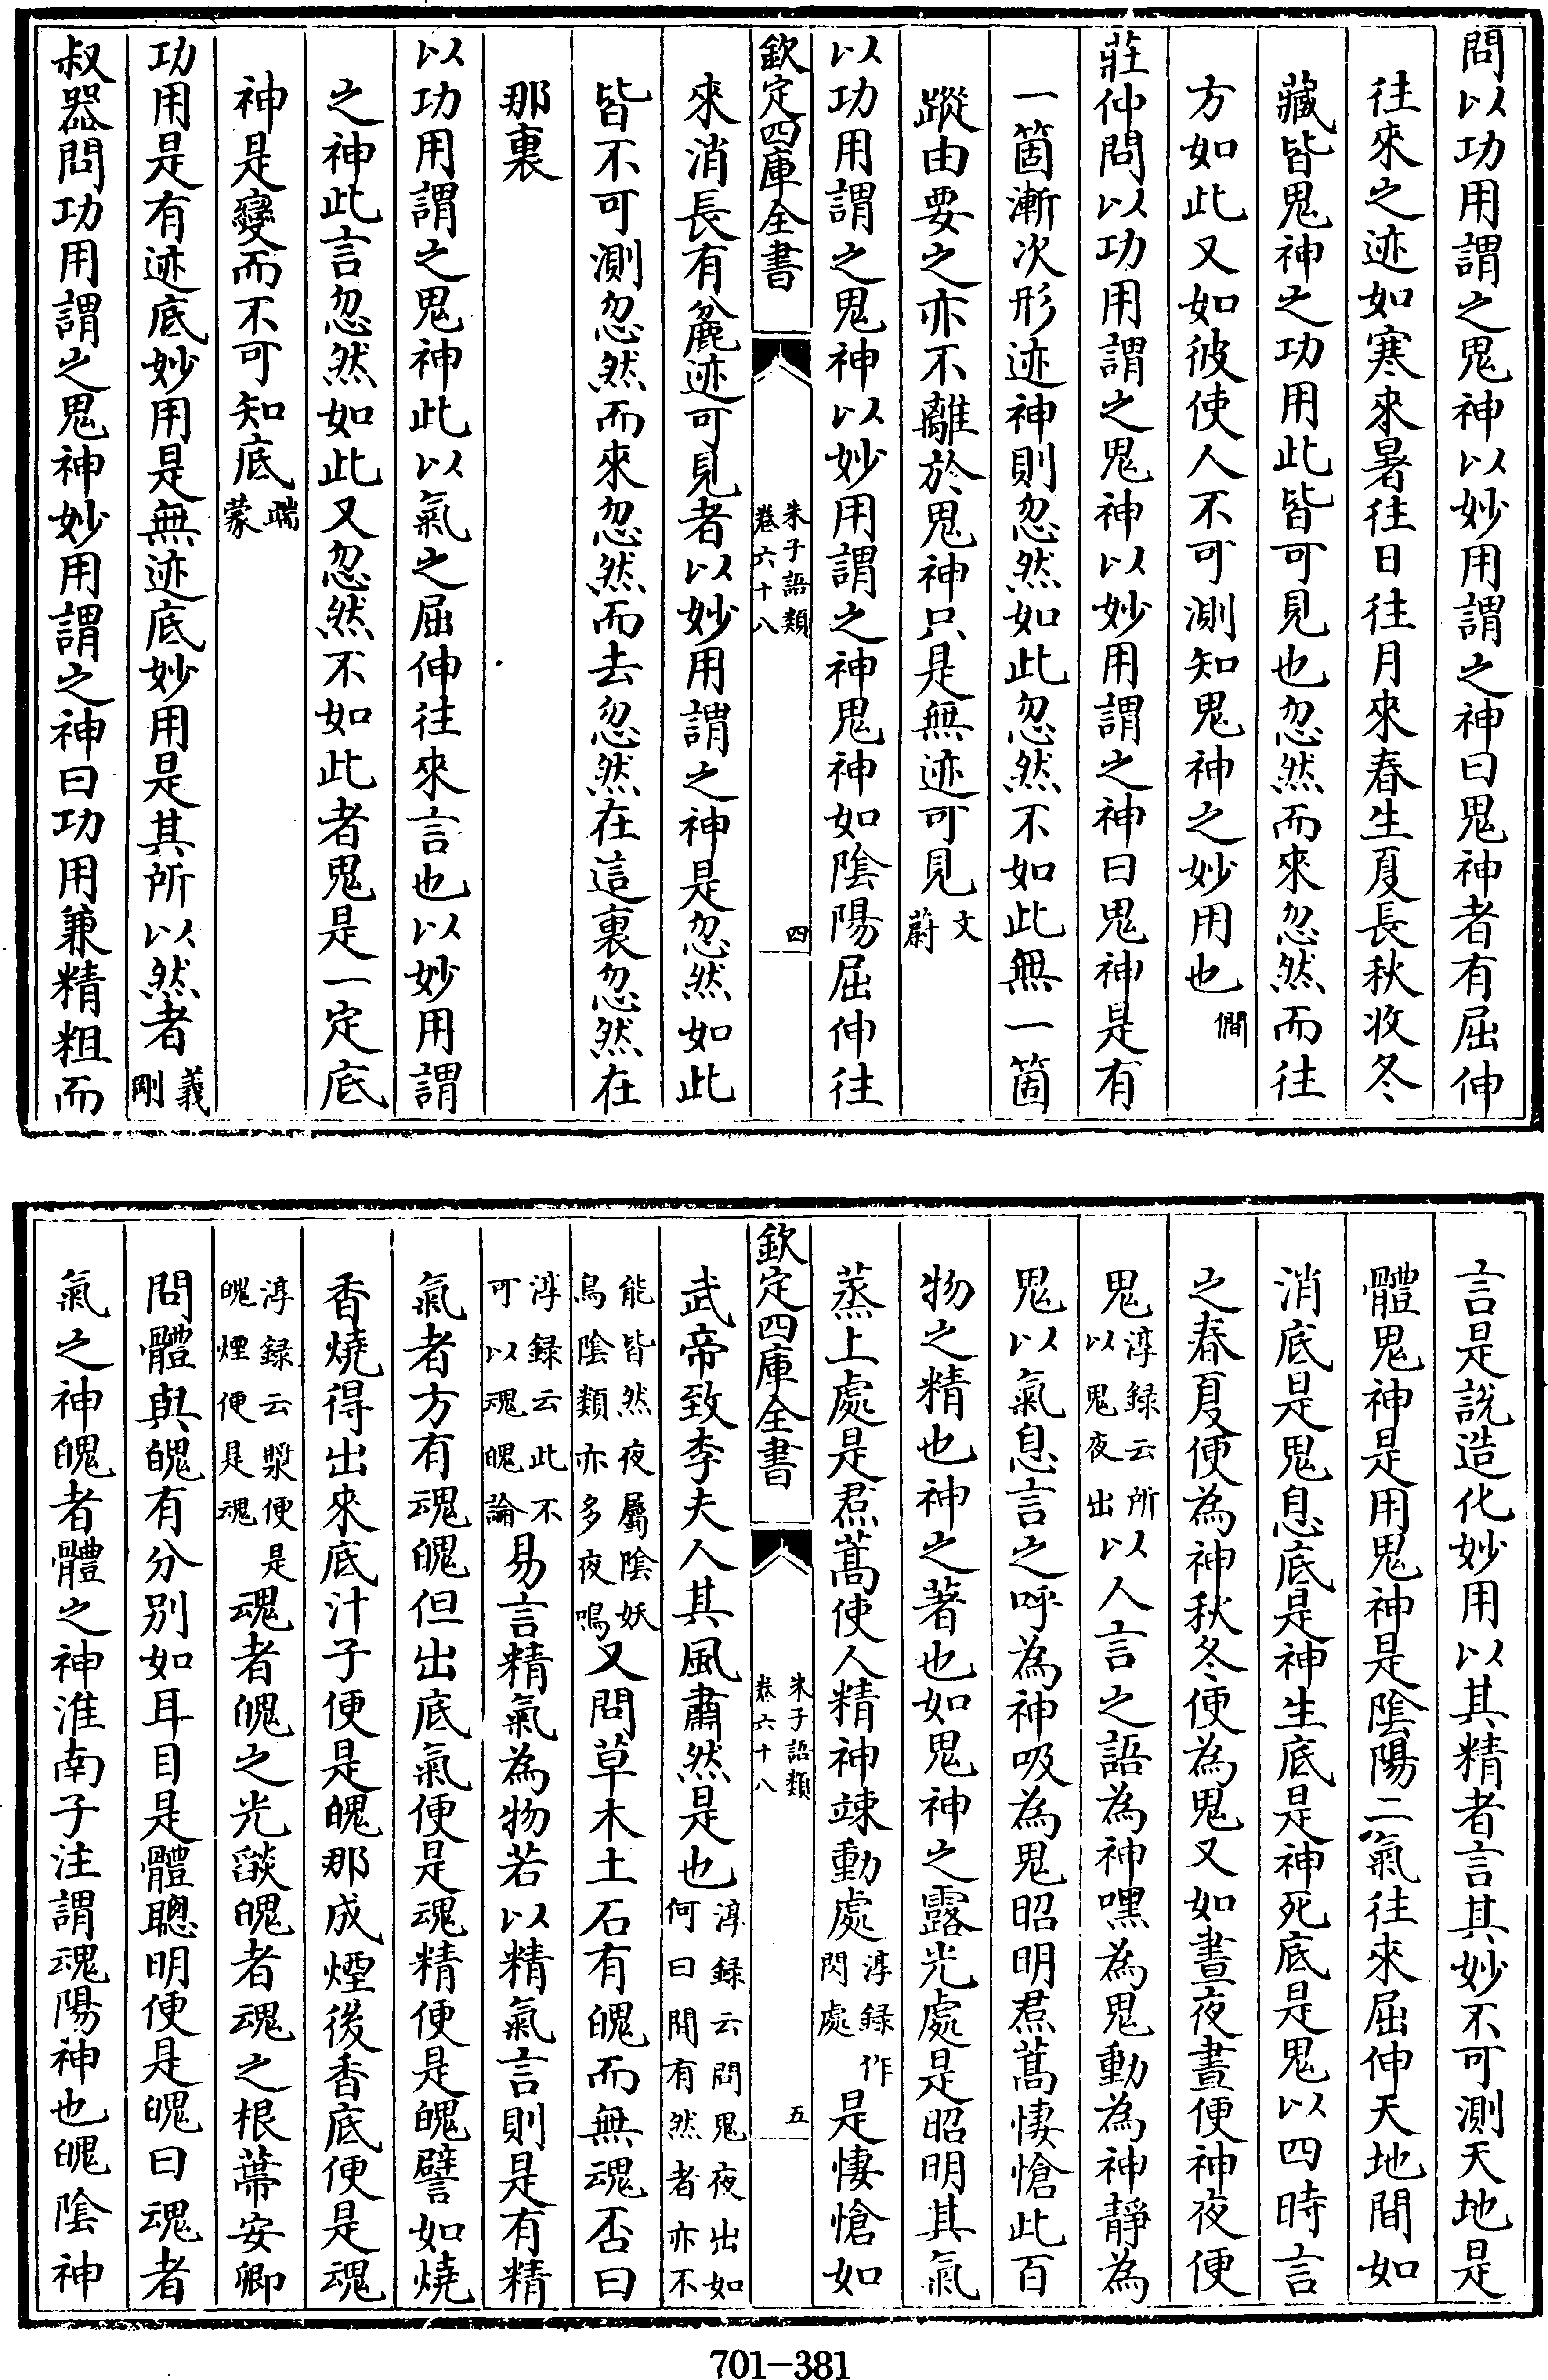 問以功用謂之鬼神以妙用謂之神曰鬼神者有屈伸
往來之迹如寒來暑往日往月來春生夏長秋收冬
藏皆鬼神之功用此皆可見也忽然而來忽然而往
方如此又如彼使人不可測知鬼神之妙用也僩
莊仲問以功用謂之鬼神以妙用謂之神曰鬼神是有
一箇漸次形迹神則忽然如此忽然不如此無一箇
蹤由要之亦不離於鬼神只是無迹可見文蔚
以功用謂之鬼神以妙用謂之神鬼神如陰陽屈伸往
欽定四庫全書 朱子語類 卷六十八 四
來消長有麄迹可見者以妙用謂之神是忽然如此
皆不可測忽然而來忽然而去忽然在這裏忽然在
那裏
以功用謂之鬼神此以氣之屈伸往來言也以妙用謂
之神此言忽然如此又忽然不如此者鬼是一定底
神是變而不可知底端蒙
功用是有迹底妙用是無迹底妙用是其所以然者義剛
叔器問功用謂之鬼神妙用謂之神曰功用兼精粗而
言是說造化妙用以其精者言其妙不可測天地是
體鬼神是用鬼神是陰陽二氣往來屈伸天地間如
消底是鬼息底是神生底是神死底是鬼以四時言
之春夏便為神秋冬便為鬼又如晝夜晝便神夜便
鬼淳録云所以鬼夜出以人言之語為神嘿為鬼動為神靜為
鬼以氣息言之呼為神吸為鬼昭明焄蒿悽愴此百
物之精也神之著也如鬼神之露光處是昭明其氣
蒸上處是焄蒿使人精神竦動處淳録作閃處是悽愴如
欽定四庫全書 朱子語類 卷六十八 五
武帝致李夫人其風肅然是也淳録云問鬼夜出如何曰間有然者亦不
能皆然夜屬陰妖鳥陰類亦多夜鳴又問草木土石有魄而無魂否曰
淳録云此不可以魂魄論易言精氣為物若以精氣言則是有精
氣者方有魂魄但出底氣便是魂精便是魄譬如燒
香燒得出來底汁子便是魄那成煙後香底便是魂
淳録云漿便是魄煙便是魂魂者魄之光燄魄者魂之根蔕安卿
問體與魄有分別如耳目是體聰明便是魄曰魂者
氣之神魄者體之神淮南子注謂魂陽神也魄陰神
701-381